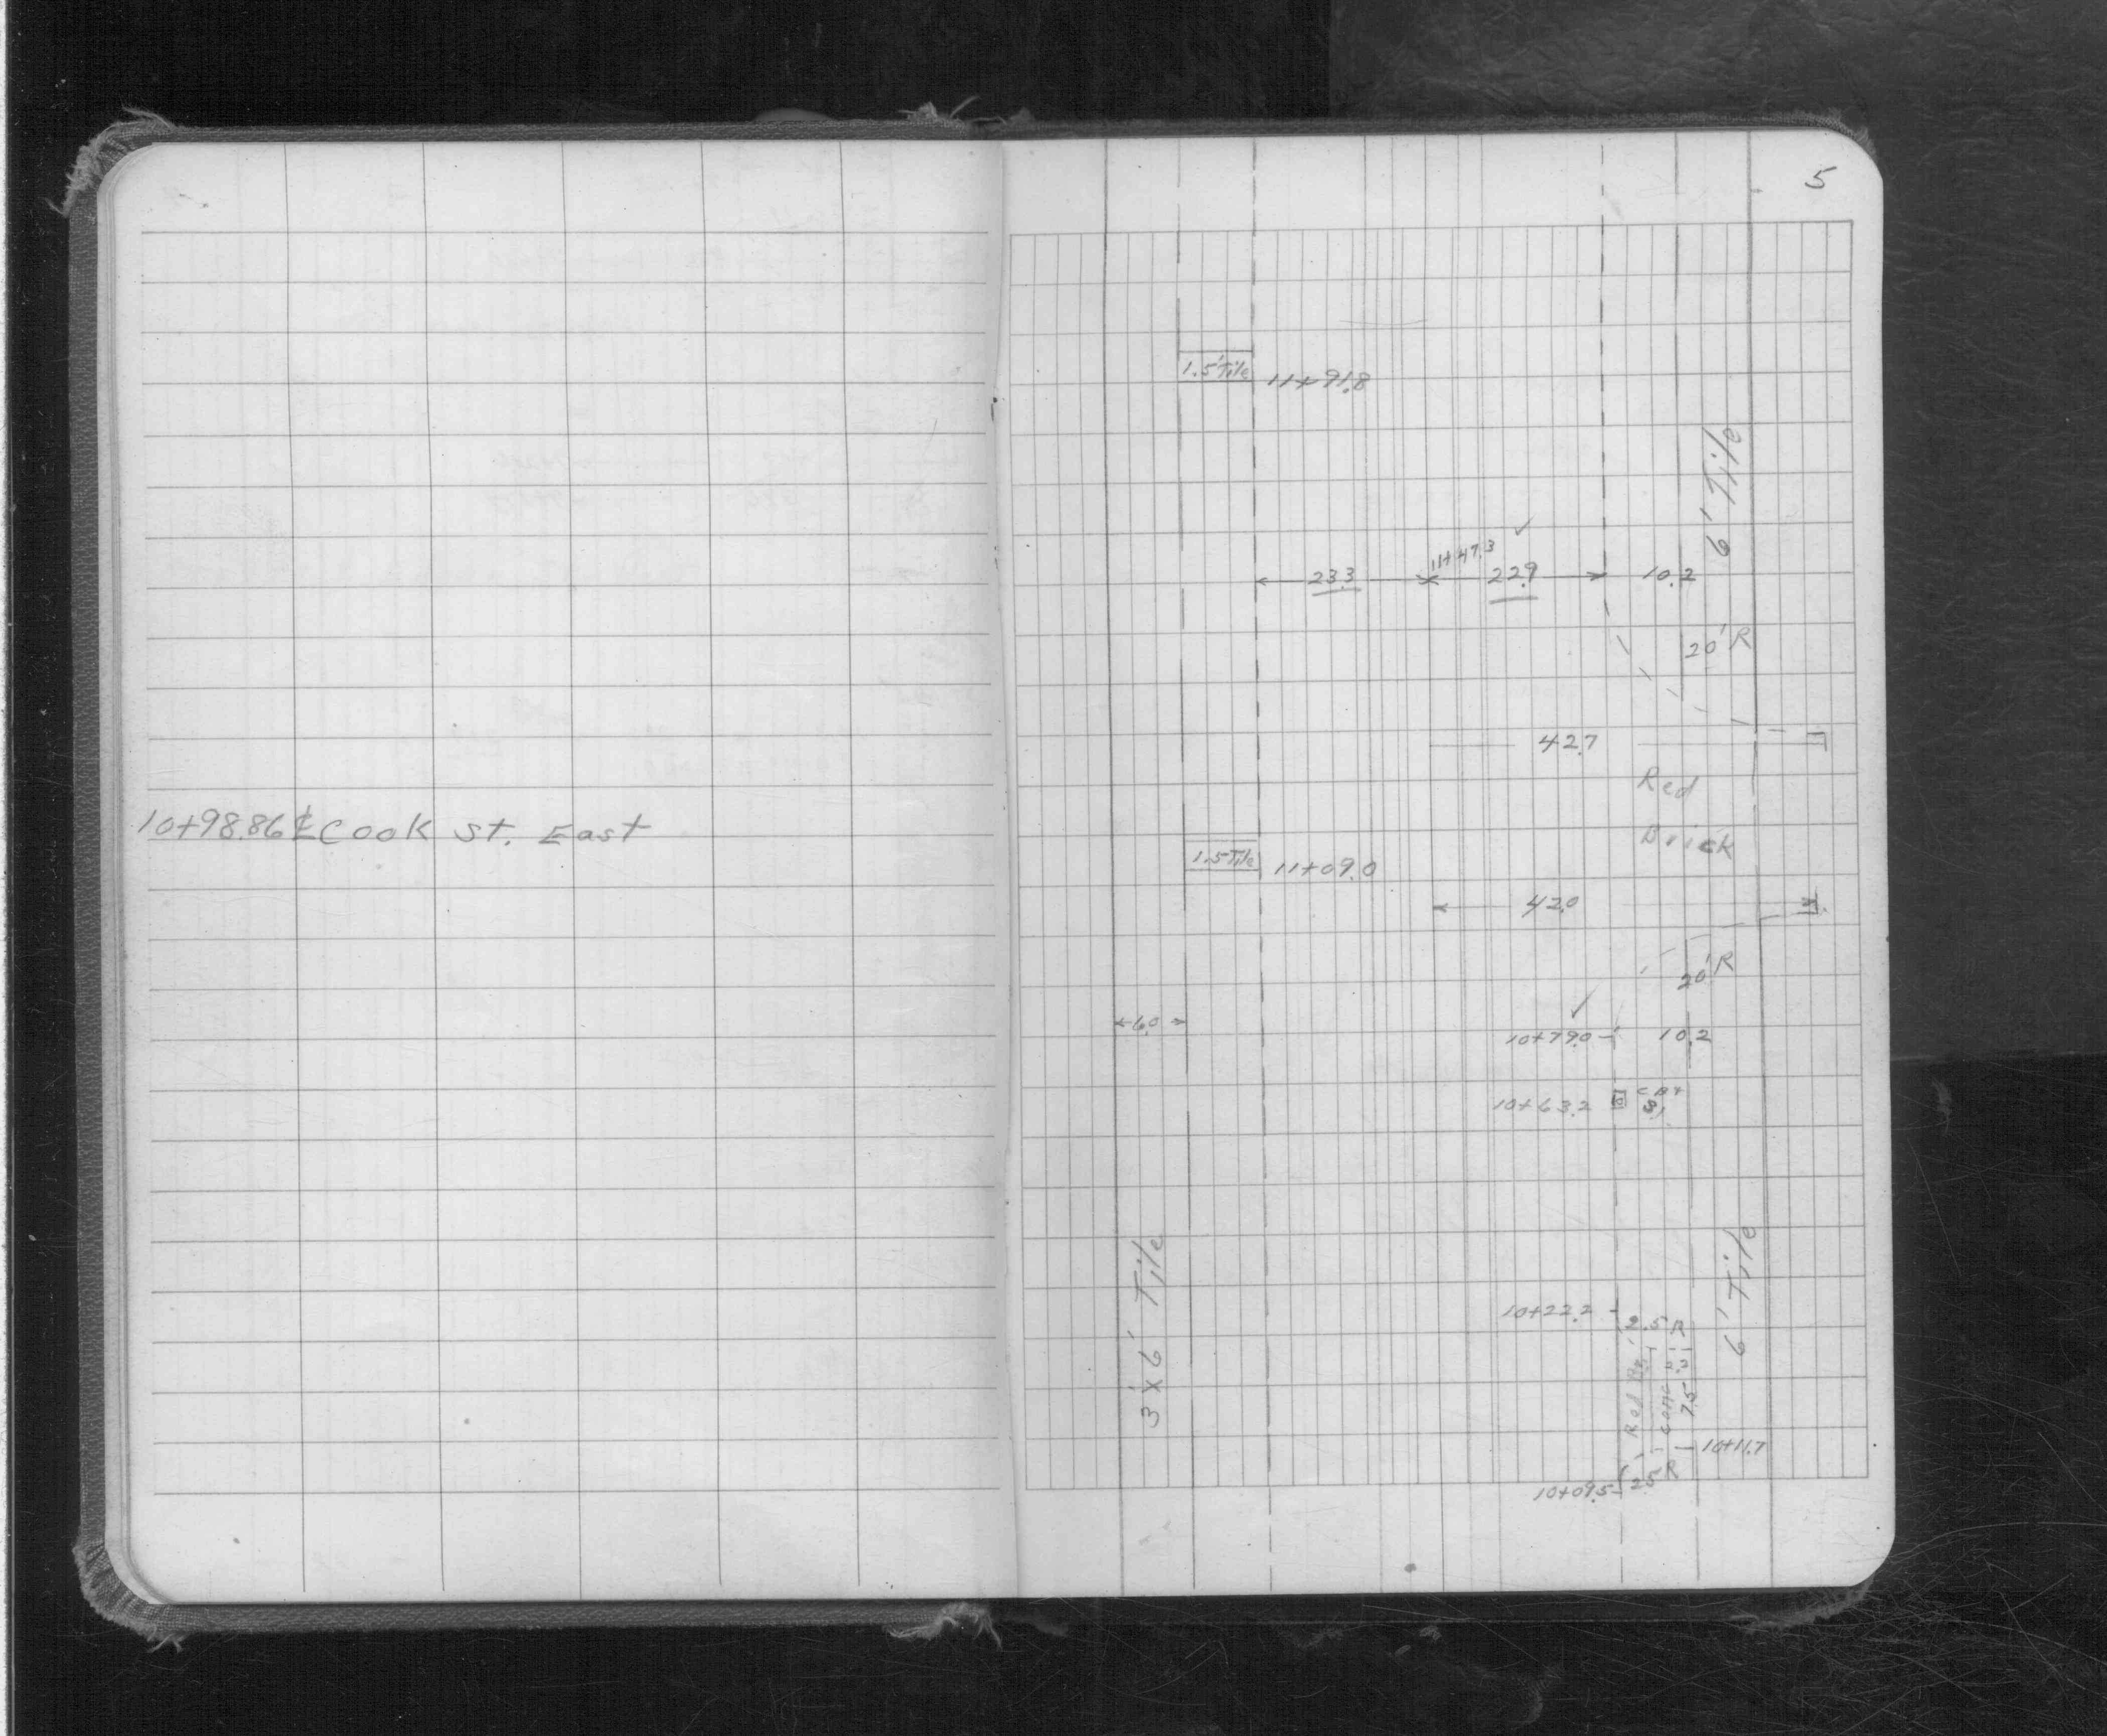 10+98.86 ℄ Cook St. East
5
1.5' Tile 11+91.8
6' Tile
11+47.3
23.3 22.9 10.2
20' R
42.7
Red
Brick
1.5 Tile 11+09.0
42.0
20' R
6.0
10+79.0 10.2
10+63.2
3' x 6' Tile
6' Tile
10+22.2
2.5 R
Red
Conc
7.5
10+11.7
10+09.5 2.5 R